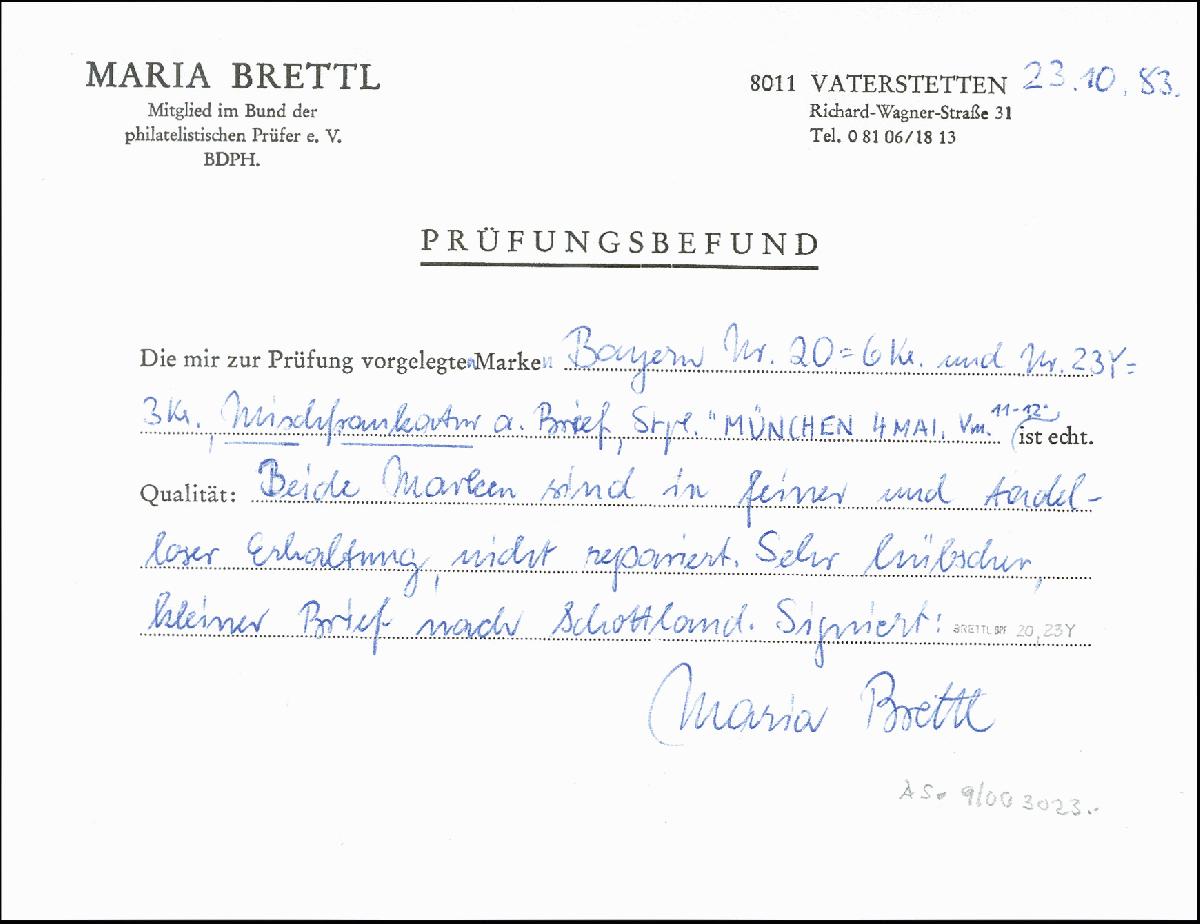 MARIA BRETTL
Mitglied im Bund der
philatelistischen Prüfer e. V.
BDPH.
8011 VATERSTETTEN 23.10.83.
Richard-Wagner-Straße 31
Tel. 0 81 06/18 13
PRÜFUNGSBEFUND
Die mir zur Prüfung vorgelegten Marken Bayern Nr. 20 = 6 Kr. und Nr. 23Y =
3 Kr., Mischfrankatur a. Brief, Stpl. "MÜNCHEN 4 MAI, Vm. 11-12" ist echt.
Qualität: Beide Marken sind in feiner und tadel-
loser Erhaltung, nicht repariert. Sehr hübscher,
kleiner Brief nach Schottland. Signiert: BRETTL BPP 20, 23Y
Maria Brettl
AS. 9/00 3023.-